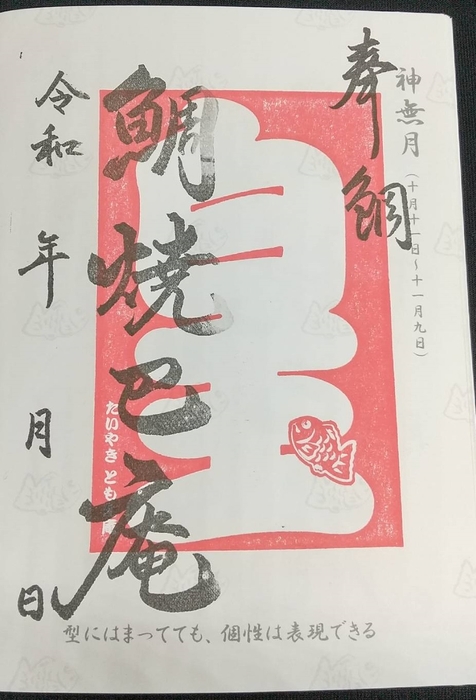 神無月(十月十一日〜十一月九日)
奉鯛
鯛焼巴庵
たいやき とも
令和 年 月 日
型にはまってても、個性は表現できる